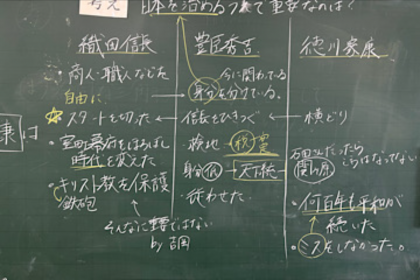 考え
日本を治める上で重要なのは?
織田信長
・商人・職人などを
自由に
☆スタートを切った
・室町幕府をほろぼし
時代を変えた
・キリスト教を保護
鉄砲
そんなに重要ではない
by 吉岡
豊臣秀吉
今に関わっている
身分を分けている。
信長をひきつぐ
検地 税 農
身分 低 → 天下統一
従わせた。
徳川家康
横どり
関ヶ原
・何百年も平和が
続いた
・ミスをしなかった。
康は